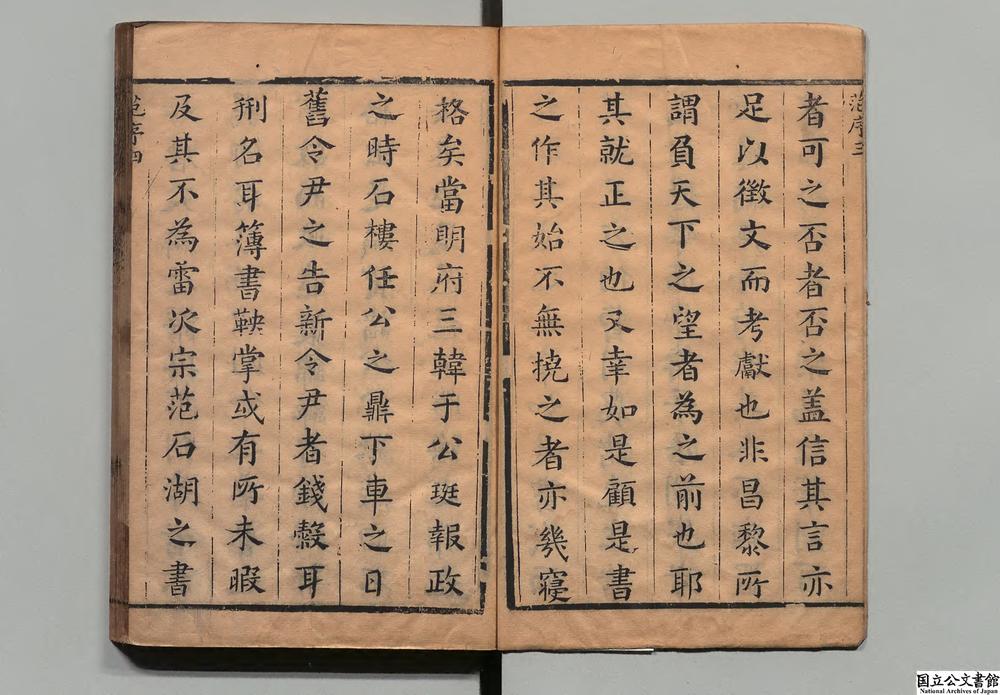 范序三
者可之否者否之盖信其言亦
足以徵文而考獻也非昌黎所
謂負天下之望者為之前也耶
其就正之也又幸如是顧是書
之作其始不無撓之者亦幾寢
格矣當明府三韓于公珽報政
之時石樓任公之鼎下車之日
舊令尹之告新令尹者錢穀耳
刑名耳簿書鞅掌或有所未暇
及其不為雷次宗范石湖之書
范序四
国立公文書館
National Archives of Japan